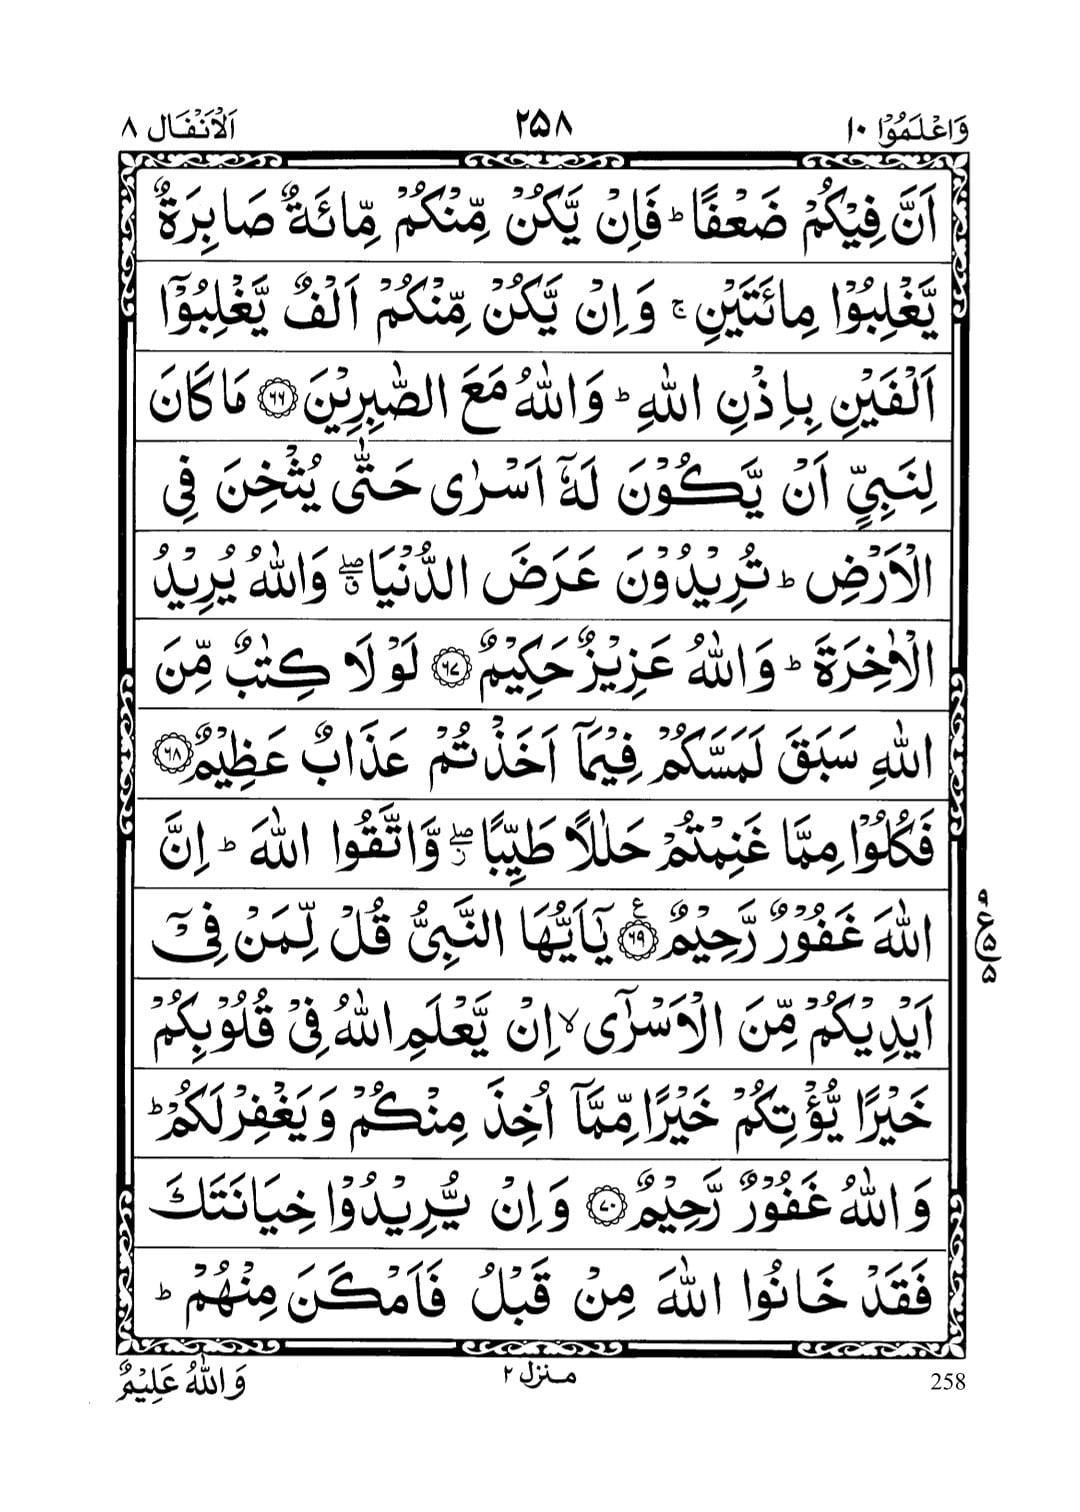 وَاعْلَمُوْٓا ١٠ ٢٥٨ اَلْاَنْفَال ٨
اَنَّ فِيْكُمْ ضَعْفًا ؕ فَاِنْ يَّكُنْ مِّنْكُمْ مِّائَةٌ صَابِرَةٌ
يَّغْلِبُوْا مِائَتَيْنِ ۚ وَاِنْ يَّكُنْ مِّنْكُمْ اَلْفٌ يَّغْلِبُوْٓا
اَلْفَيْنِ بِاِذْنِ اللّٰهِ ؕ وَاللّٰهُ مَعَ الصّٰبِرِيْنَ ۝۶۶ مَا كَانَ
لِنَبِيٍّ اَنْ يَّكُوْنَ لَهٗٓ اَسْرٰى حَتّٰى يُثْخِنَ فِى
الْاَرْضِ ؕ تُرِيْدُوْنَ عَرَضَ الدُّنْيَا ۖۗ وَاللّٰهُ يُرِيْدُ
الْاٰخِرَةَ ؕ وَاللّٰهُ عَزِيْزٌ حَكِيْمٌ ۝۶۷ لَوْ لَا كِتٰبٌ مِّنَ
اللّٰهِ سَبَقَ لَمَسَّكُمْ فِيْمَآ اَخَذْتُمْ عَذَابٌ عَظِيْمٌ ۝۶۸
فَكُلُوْا مِمَّا غَنِمْتُمْ حَلٰلًا طَيِّبًا ۖز وَّاتَّقُوا اللّٰهَ ؕ اِنَّ
اللّٰهَ غَفُوْرٌ رَّحِيْمٌ ۝۶۹ ع يٰٓاَيُّهَا النَّبِىُّ قُلْ لِّمَنْ فِىْٓ
٩ ع ۵ ۵
اَيْدِيْكُمْ مِّنَ الْاَسْرٰٓى ۙ اِنْ يَّعْلَمِ اللّٰهُ فِىْ قُلُوْبِكُمْ
خَيْرًا يُّؤْتِكُمْ خَيْرًا مِّمَّآ اُخِذَ مِنْكُمْ وَيَغْفِرْ لَكُمْ ؕ
وَاللّٰهُ غَفُوْرٌ رَّحِيْمٌ ۝۷۰ وَاِنْ يُّرِيْدُوْا خِيَانَتَكَ
فَقَدْ خَانُوا اللّٰهَ مِنْ قَبْلُ فَاَمْكَنَ مِنْهُمْ ؕ
258 منزل ٢ وَاللّٰهُ عَلِيْمٌ